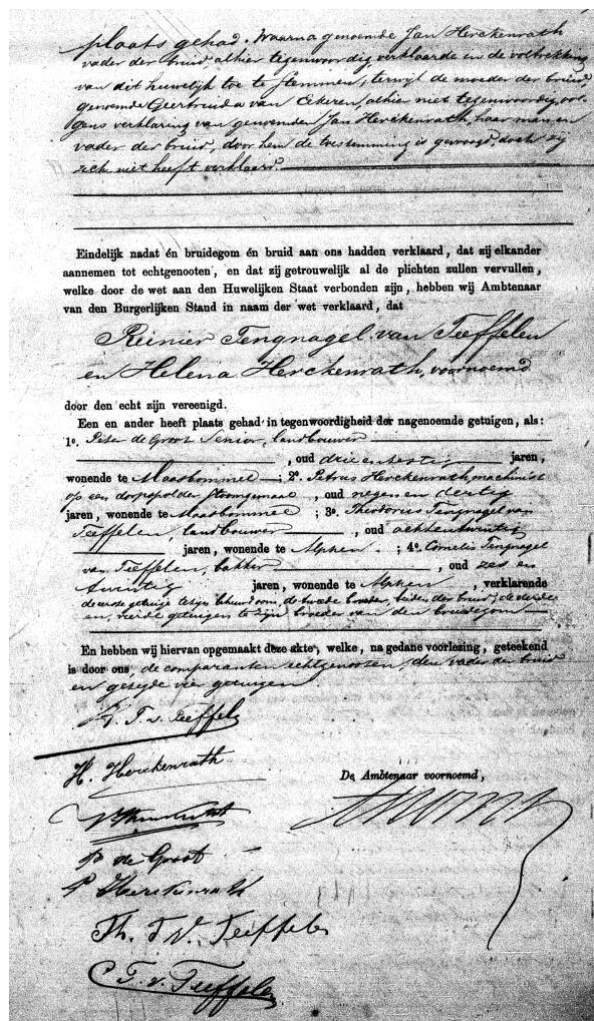 plaats gehad. Waarna genoemde Jan Herckenrath
vader der bruid, alhier tegenwoordig verklaarde in de voltrekking
van dit huwelijk toe te stemmen, terwijl de moeder der bruid,
genoemde Geertruida van Eckeren, alhier niet tegenwoordig, vol-
gens verklaring van genoemden Jan Herckenrath, haar man, en
vader der bruid, door hen de toestemming is gevraagd, doch zij
zich niet heeft verklaard.
Eindelijk nadat én bruidegom én bruid aan ons hadden verklaard, dat zij elkander
aannemen tot echtgenooten, en dat zij getrouwelijk al de plichten zullen vervullen,
welke door de wet aan den Huwelijken Staat verbonden zijn, hebben wij Ambtenaar
van den Burgerlijken Stand in naam der wet verklaard, dat
Reinier Tengnagel van Teeffelen
en Helena Herckenrath, voornoemd
door den echt zijn vereenigd.
Een en ander heeft plaats gehad in tegenwoordigheid der nagenoemde getuigen, als:
1o. Peter de Groot Senior, landbouwer
, oud drie en dertig jaren,
wonende te Maasbommel ; 2o. Petrus Herckenrath, machinist
op een dorpspolder stoomgemaal , oud negen en dertig
jaren, wonende te Maasbommel ; 3o. Theodorus Tengnagel van
Teeffelen, landbouwer , oud acht en twintig
jaren, wonende te Alphen. ; 4o. Cornelis Tengnagel
van Teeffelen, bakker , oud zes en
twintig jaren, wonende te Alphen , verklarende
de eerste getuige te zijn behuwd oom, de tweede broeder, beiden der bruid, de derde
en vierde getuigen te zijn broeder van den bruidegom
En hebben wij hiervan opgemaakt deze akte, welke, na gedane voorlezing, geteekend
is door ons, de comparanten echtgenooten, den vader der bruid
en gezegde vier getuigen.
R. T. v. Teeffelen
H. Herckenrath
De Ambtenaar voornoemd,
P de Groot
P Herckenrath
Th. T. V. Teeffelen
C T. v. Teeffelen